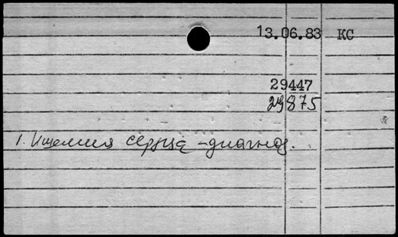 13.06.83 КС
29447
29875
1. Ишемия сердца - диагноз.